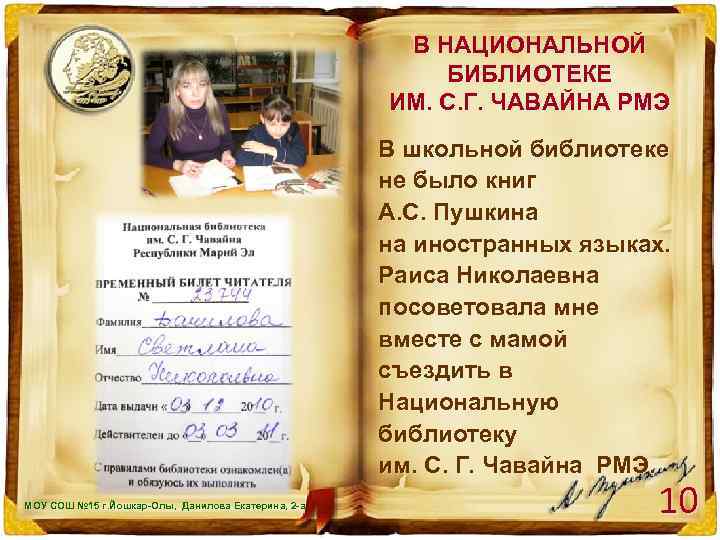 В НАЦИОНАЛЬНОЙ
БИБЛИОТЕКЕ
ИМ. С.Г. ЧАВАЙНА РМЭ
В школьной библиотеке
не было книг
А.С. Пушкина
на иностранных языках.
Раиса Николаевна
посоветовала мне
вместе с мамой
съездить в
Национальную
библиотеку
им. С. Г. Чавайна РМЭ.
Национальная библиотека
им. С. Г. Чавайна
Республики Марий Эл
ВРЕМЕННЫЙ БИЛЕТ ЧИТАТЕЛЯ
№ 23744
Фамилия Данилова
Имя Светлана
Отчество Николаевна
Дата выдачи « 03 12 2010 г.
Действителен до « 03 03 2011 г.
С правилами библиотеки ознакомлен(а)
и обязуюсь их выполнять
МОУ СОШ №15 г.Йошкар-Олы, Данилова Екатерина, 2-а
А Пушкинъ
10